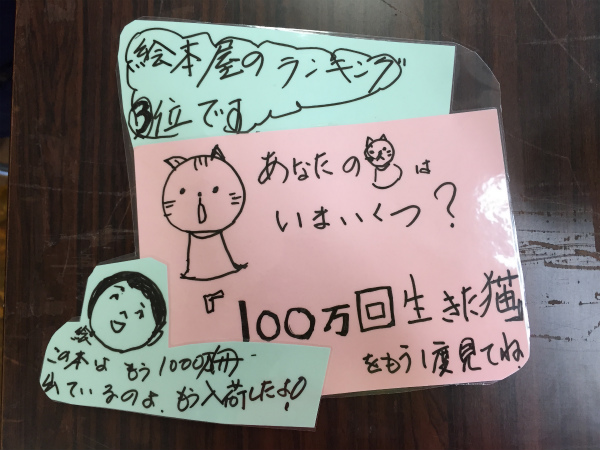 絵本屋のランキング
3位です
あなたの は
いまいくつ?
『100万回生きた猫』
をもう1度見てね
この絵本はもう1000冊
出ているのよ。もう入荷したよ!